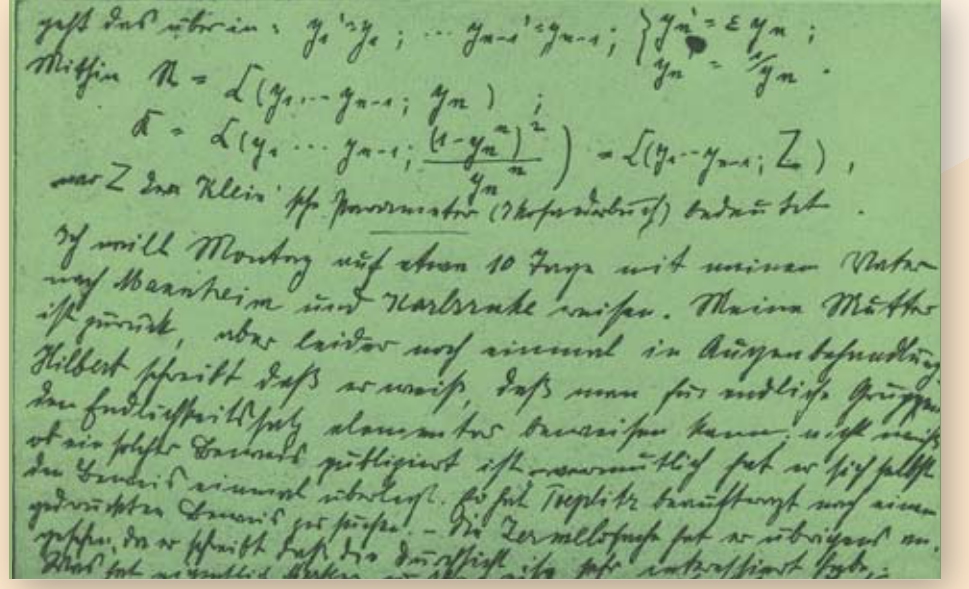 geht das über in: y₁' = y₁; ... y'ₙ₋₁ = yₙ₋₁; { yₙ' = ε yₙ;
yₙ' = 1/yₙ.
Mithin K = L(y₁...yₙ₋₁; yₙ);
K = L(y₁ ... yₙ₋₁; (1-yₙⁿ)²/yₙⁿ) = L(y₁...yₙ₋₁; Z),
wo Z den Klein'sche Parameter (Ikosaederbuch) bedeutet.
Ich will Montag auf etwa 10 Tage mit meinem Vater
nach Mannheim und Karlsruhe reisen. Meine Mutter
ist zurück, aber leider noch einmal in Augenbehandlung.
Hilbert schreibt daß er weiß, daß man für endliche Gruppen
den Endlichkeitssatz elementar beweisen kann; nicht weiß
ob ein solcher Beweis publiziert ist vermutlich hat er sich selbst
den Beweis einmal überlegt. Er hat Toeplitz beauftragt nach einem
gedruckten Beweis zu suchen. - Die hat er übrigens an-
gesehen, da er schreibt daß die Durchsicht ihn sehr interessiert habe.
Was hat eigentlich